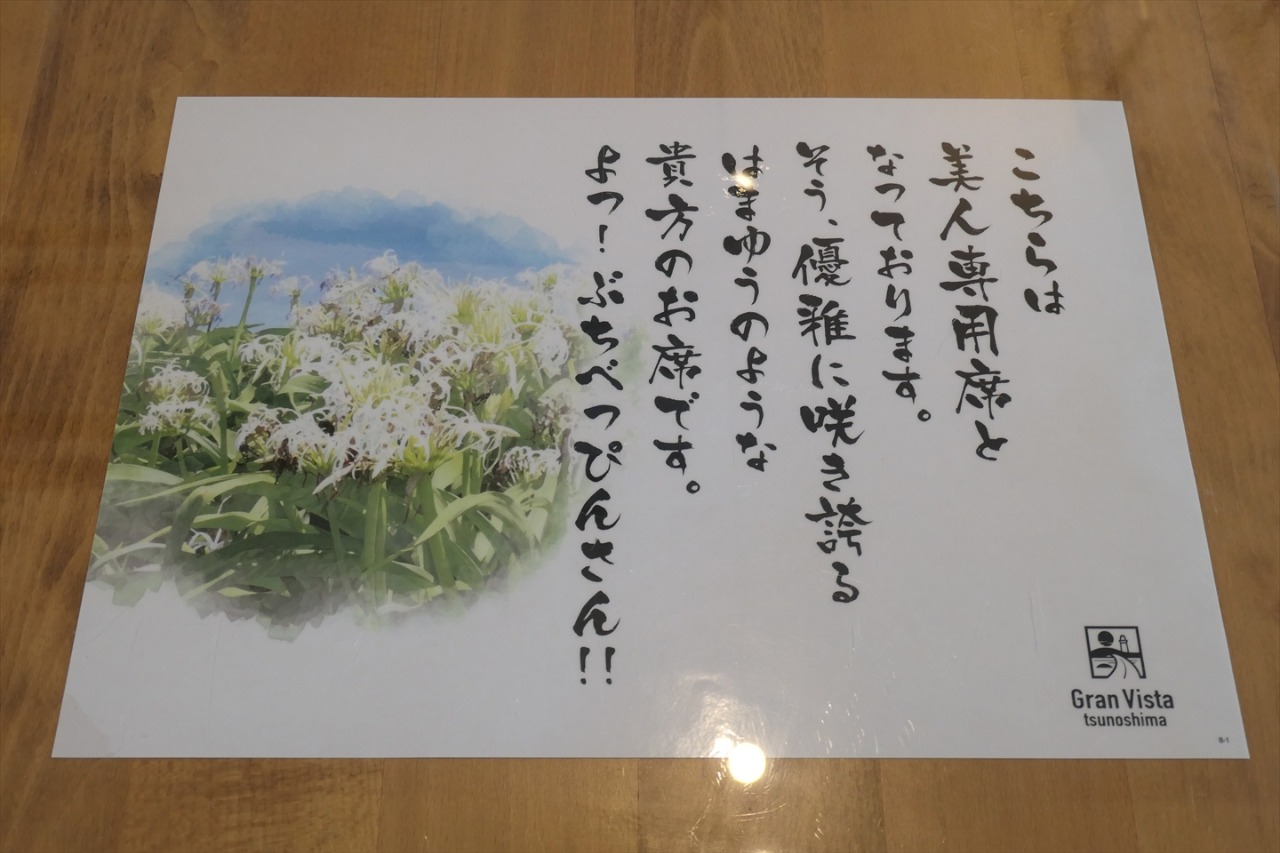 こちらは
美人専用席と
なっております。
そう、優雅に咲き誇る
はまゆうのような
貴方のお席です。
よっ！ぶちべっぴんさん!!
Gran Vista
tsunoshima
B-1